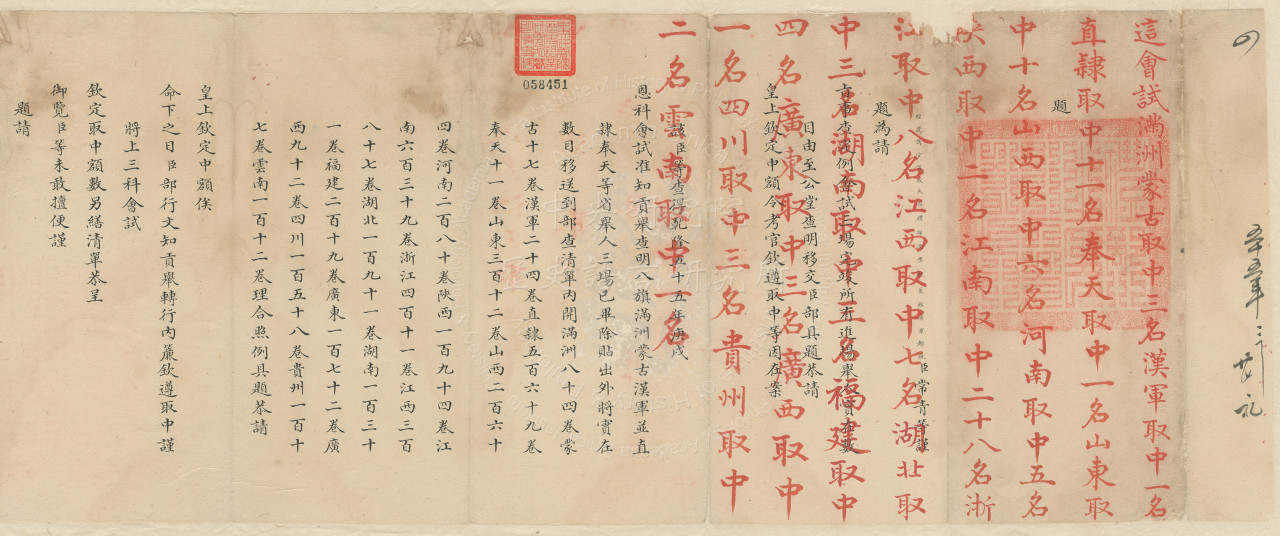 四
五五年三下 廿 礼
這會試滿洲蒙古取中三名漢軍取中一名
直隸取中十一名奉天取中一名山東取
中十名山西取中六名河南取中五名
陝西取中二名江南取中二十八名浙
江取中八名江西取中七名湖北取
中三名湖南取中二名福建取中
四名廣東取中三名廣西取中
一名四川取中三名貴州取中
二名雲南取中一名
題
臣常青等謹
題為請
查例會試三場完竣所有進場舉人實在數
目由至公堂查明移交臣部具題恭請
皇上欽定中額令考官欽遵取中等因在案
該臣等查得乾隆五十五年庚戌
恩科會試准知貢舉查明八旗滿洲蒙古漢軍並直
隸奉天等省舉人三場已畢除貼出外將實在
數目移送到部查清單內開滿洲八十四卷蒙
古十七卷漢軍二十四卷直隸五百六十九卷
奉天十一卷山東三百十二卷山西二百六十
四卷河南二百八十卷陝西一百九十四卷江
南六百三十九卷浙江四百十一卷江西三百
八十七卷湖北一百九十一卷湖南一百三十
一卷福建二百十九卷廣東一百七十二卷廣
西九十二卷四川一百五十八卷貴州一百十
七卷雲南一百十二卷理合照例具題恭請
皇上欽定中額俟
命下之日臣部行文知貢舉轉行內簾欽遵取中謹
將上三科會試
欽定取中額數另繕清單恭呈
御覽臣等未敢擅便謹
題請
058451